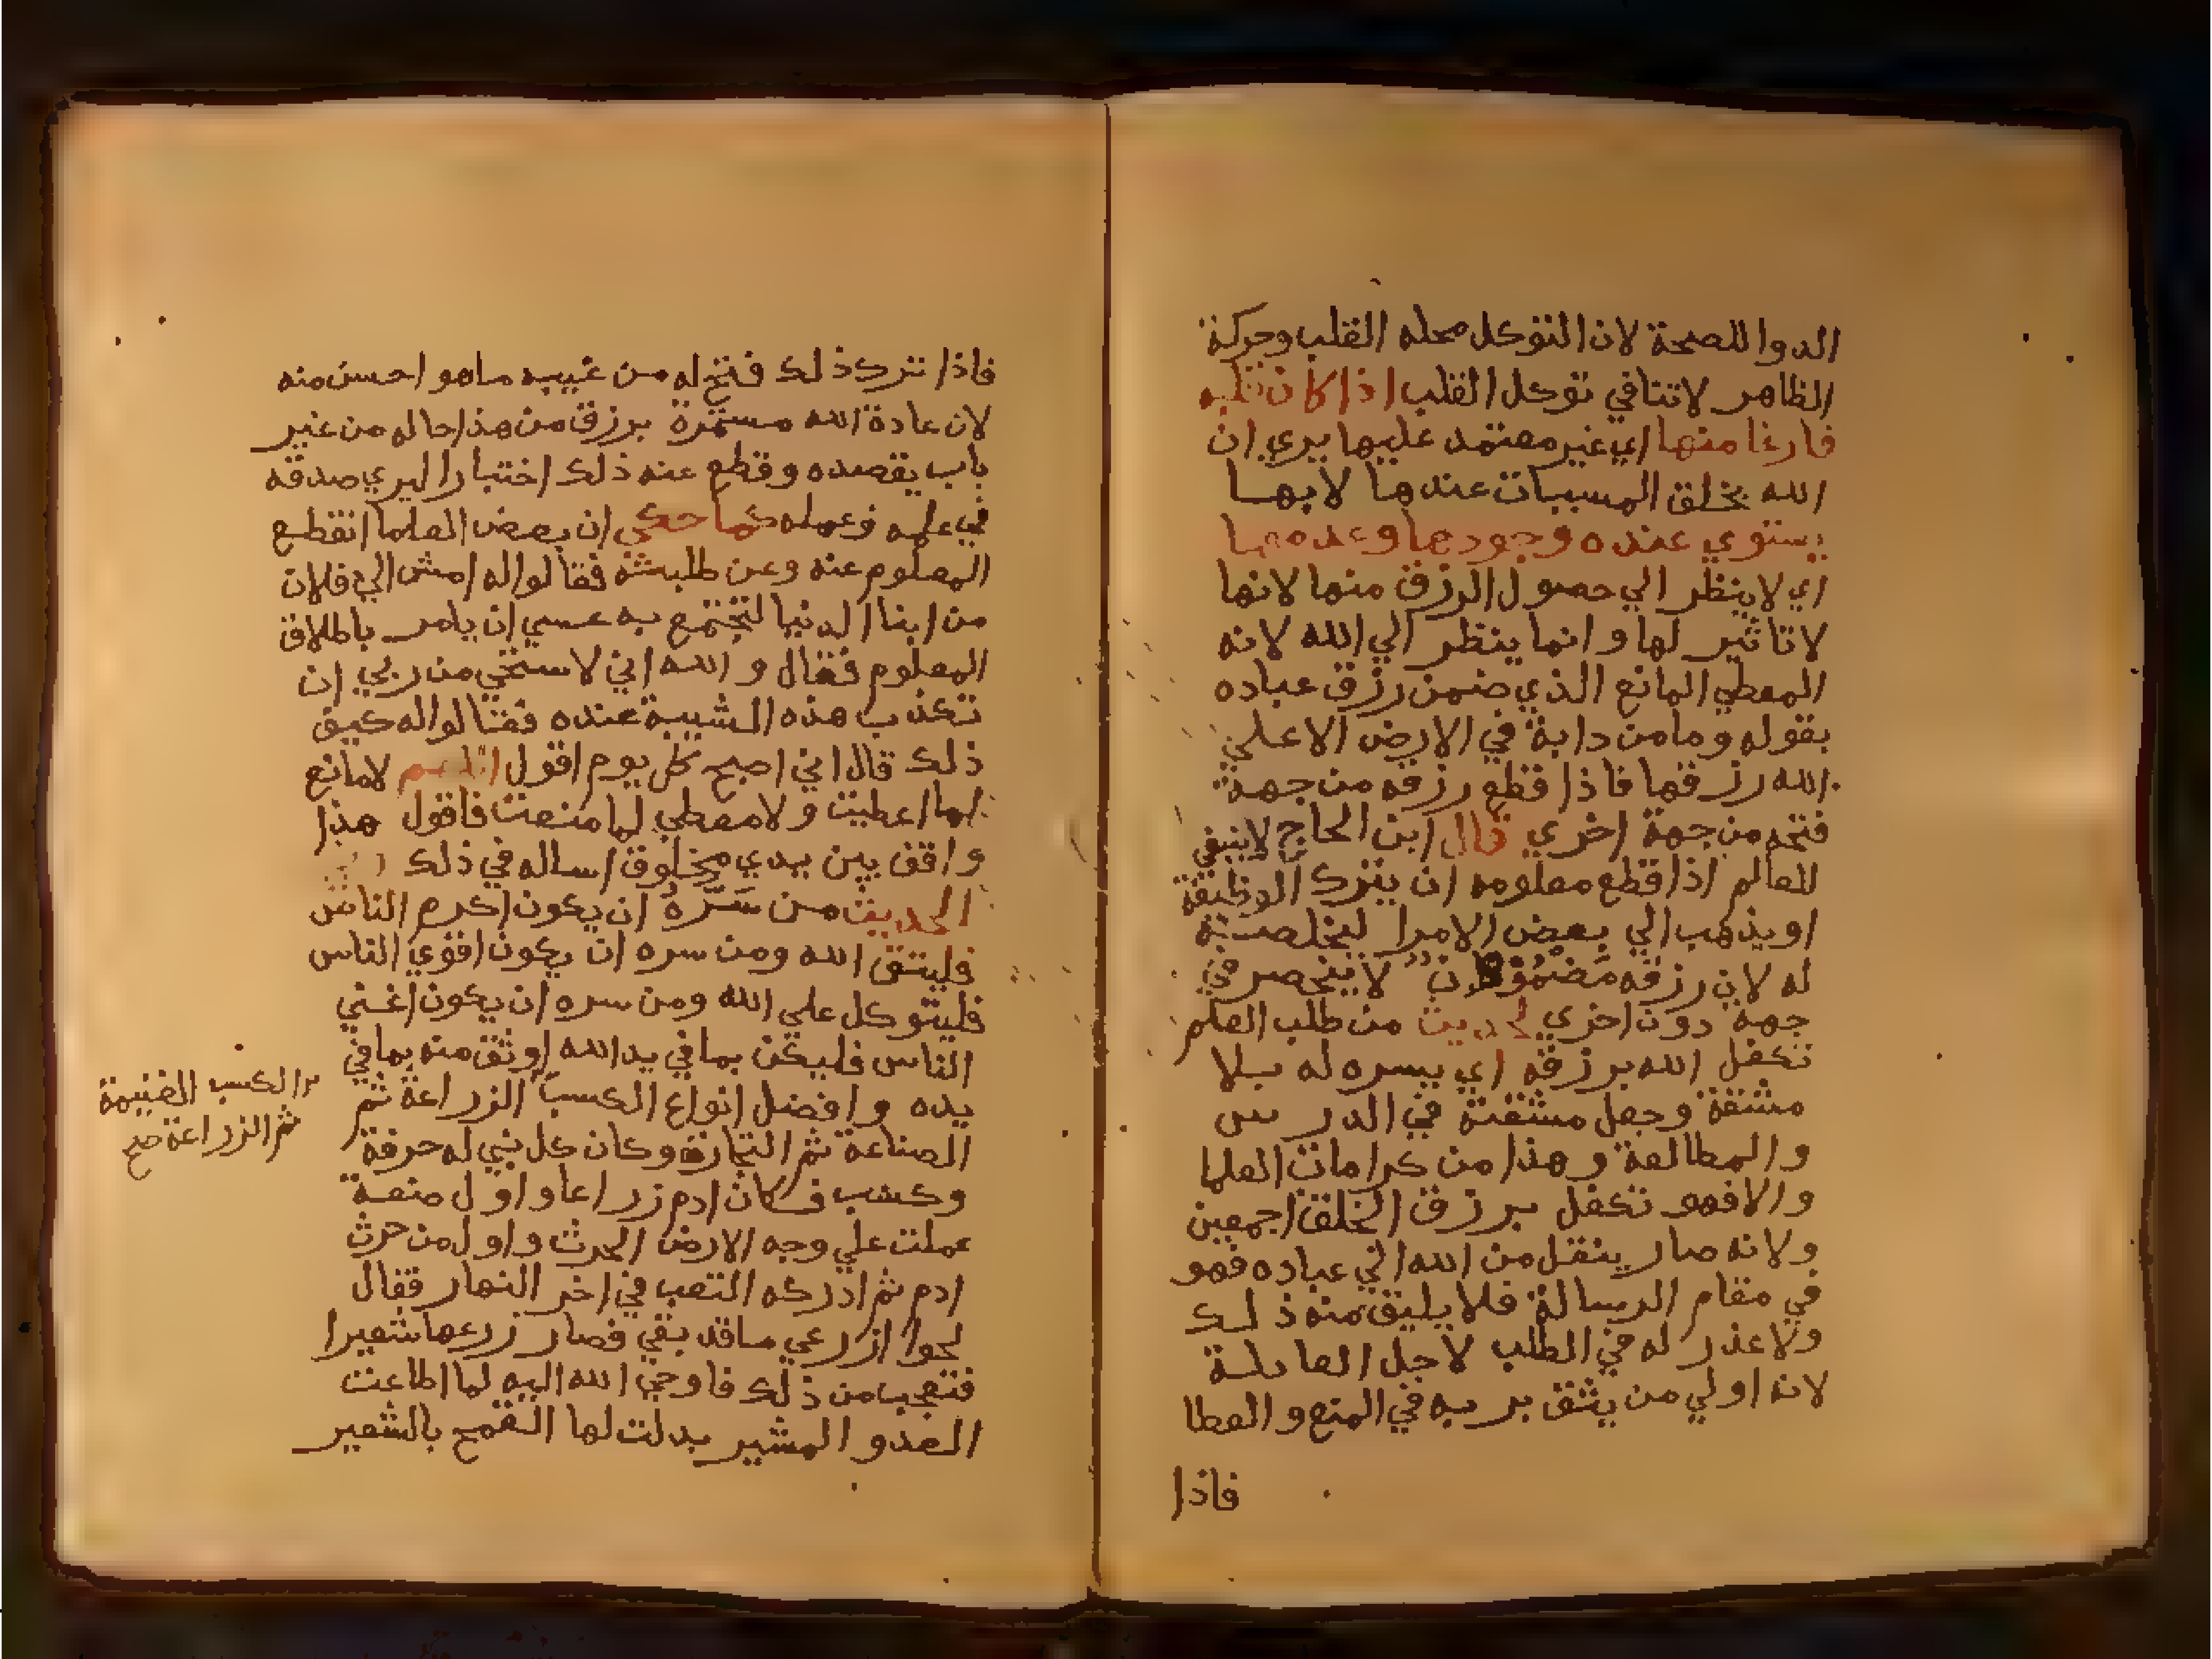 الدوا للصحة لان التوكل محله القلب وحركة
الظاهر لاتنافي توكل القلب اذا كان قلبه
فارغا منها اي غير معتمد عليها يري ان
الله يخلق المسببات عندها لا بها
يستوي عنده وجودها وعدمها
اي لا ينظر الي حصول الرزق منها لانها
لا تاثير لها وانما ينظر الي الله لانه
المعطي المانع الذي ضمن رزق عباده
بقوله وما من دابة في الارض الا علي
الله رزقها فاذا قطع رزقه من جهة
فتحه من جهة اخري قال ابن الحاج لا ينبغي
للعالم اذا قطع معلومه ان يترك الوظيفة
او يذهب الي بعض الامرا ليخلصه
له لان رزقه مضمون لا ينحصر في
جهة دون اخري لحديث من طلب العلم
تكفل الله برزقه اي ييسره له بلا
مشقة وجعل مشقته في الدرس
والمطالعة وهذا من كرامات العلما
والا فهو تكفل برزق الخلق اجمعين
ولانه صار ينقل من الله الي عباده فهو
في مقام الرسالة فلا يليق منه ذلك
ولا عذر له في الطلب لاجل العايلة
لانه اولي من يثق بربه في المنع والعطا
فاذا
فاذا ترك ذلك فتح له من غيبه ما هو احسن منه
لان عادة الله مستمرة برزق من هذا حاله من غير
باب يقصده وقطع عنه ذلك اختبارا ليري صدقه
في علمه وعمله كما حكي ان بعض العلما انقطع
المعلوم عنه وعن طلبته فقالوا له امش الي فلان
من ابنا الدنيا لتجتمع به عسي ان يامر باطلاق
المعلوم فقال والله اني لاستحي من ربي ان
تكذب هذه الشيبة عنده فقالوا له كيف
ذلك قال اني اصبح كل يوم اقول اللهم لا مانع
لما اعطيت ولا معطي لما منعت فاقول هذا
واقف بين يدي مخلوق اساله في ذلك
الحديث من سَرَّهُ ان يكون اكرم الناس
فليتق الله ومن سره ان يكون اقوي الناس
فليتوكل علي الله ومن سره ان يكون اغني
الناس فليكن بما في يد الله اوثق منه بما في
يده وافضل انواع الكسب الزراعة ثم
الصناعة ثم التجارة وكان كل نبي له حرفة
وكسب فكان ادم زراعا واول صنعة
عملت علي وجه الارض الحرث واول من حرث
ادم ثم ادركه التعب في اخر النهار فقال
لحوا ازرعي ما قد بقي فصار زرعها شعيرا
فتعجب من ذلك فاوحي الله اليه لما اطاعت
العدو المشير بدلت لها القمح بالشعير
الكسب الغنيمة
ثم الزراعة صح